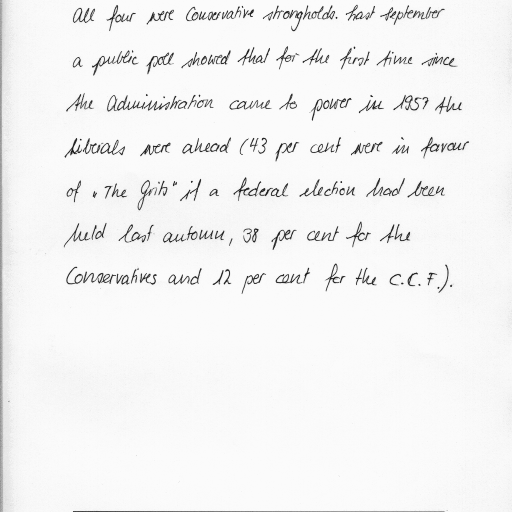 All four were Conservative strongholds. Last September
a public poll showed that for the first time since
the Administration came to power in 1957 the
Liberals were ahead (43 per cent were in favour
of "The Grits" if a federal election had been
held last autumn, 38 per cent for the
Conservatives and 12 per cent for the C.C.F.).